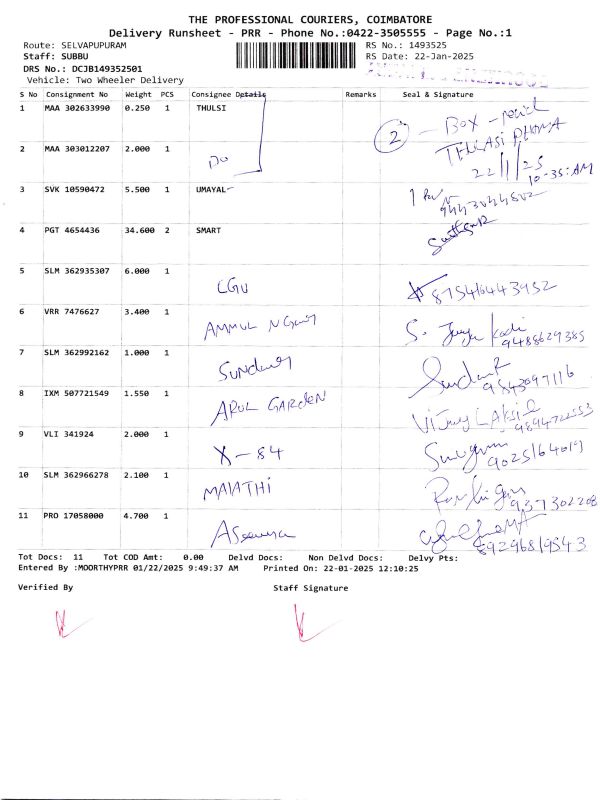 THE PROFESSIONAL COURIERS, COIMBATORE
Delivery Runsheet - PRR - Phone No.:0422-3505555 - Page No.:1
Route: SELVAPUPURAM RS No.: 1493525
Staff: SUBBU RS Date: 22-Jan-2025
DRS No.: DCJB149352501
Vehicle: Two Wheeler Delivery
S No Consignment No Weight PCS Consignee Details Remarks Seal & Signature
1 MAA 302633990 0.250 1 THULSI 2 - BOX -
2 MAA 303012207 2.000 1 DO 22/1/25
10-35:AM
3 SVK 10590472 5.500 1 UMAYAL
4 PGT 4654436 34.600 2 SMART
5 SLM 362935307 6.000 1 CGU 87546443952
6 VRR 7476627 3.400 1 AMMUL S. 9488629385
7 SLM 362992162 1.000 1 9843097116
8 IXM 507721549 1.550 1 ARUL GARDEN
9 VLI 341924 2.000 1 X-84 9025164019
10 SLM 362966278 2.100 1 MALATHI 937302208
11 PRO 17058000 4.700 1 89296819543
Tot Docs: 11 Tot COD Amt: 0.00 Delvd Docs: Non Delvd Docs: Delvy Pts:
Entered By :MOORTHYPRR 01/22/2025 9:49:37 AM Printed On: 22-01-2025 12:10:25
Verified By Staff Signature